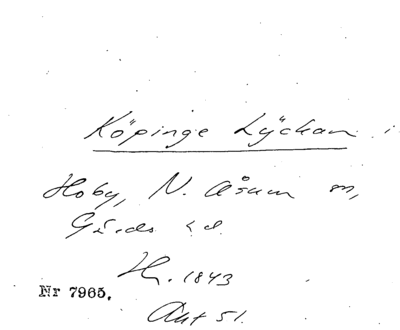 Köpinge Lyckan i
Hoby, N. Åsum m,
Gärds hd.
H. 1843
Akt 51.
Nr 7965.